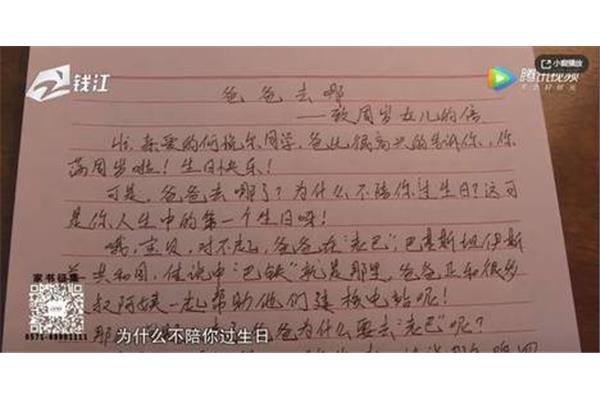 钱江
小窗播放
腾讯视频
爸爸去哪
——致周岁女儿的信
Hi, 亲爱的何悦尔同学，爸比很高兴的告诉你，你
满周岁啦！生日快乐！
可是，爸爸去哪了？为什么不陪你过生日？这可
是你人生中的第一个生日呀！
哦，宝贝，对不起，爸爸在“老巴”，巴基斯坦伊斯
兰共和国，传说中“巴铁”就是那里，爸爸正和很多
叔阿姨一起帮助他们建核电站呢！
那 爸爸为什么要去“老巴”呢？
家书征集
0571-88901111
为什么不陪你过生日